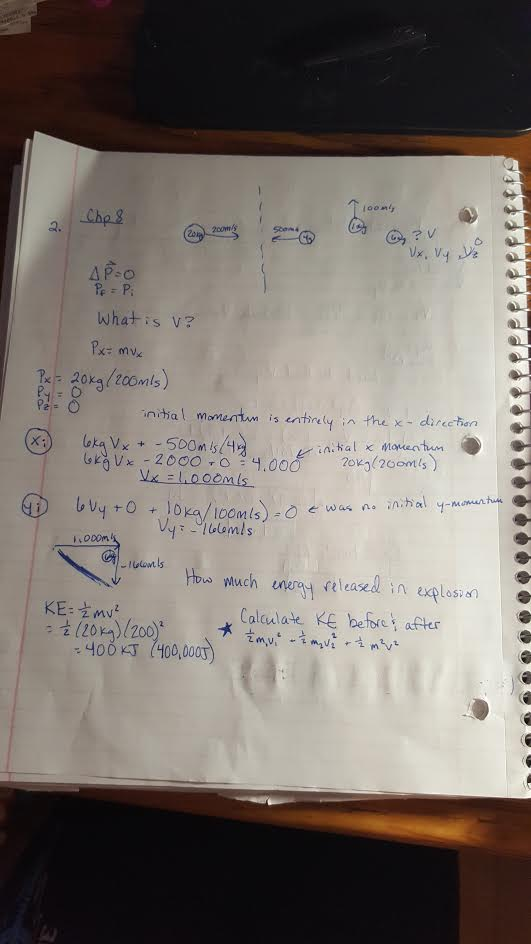 2. Chp 8
20kg 200m/s 500m/s 4kg 100m/s
6kg ? V
Vx, Vy, Vz 0
ΔP⃗=0
Pf = Pi
What is V?
Px = mvx
Px = 20kg (200m/s)
Py = 0
Pz = 0
initial momentum is entirely in the x-direction
x: 6kg Vx + -500m/s (4kg) ← initial x momentum
6kg Vx - 2000 + 0 = 4,000 20kg (200m/s)
Vx = 1,000m/s
y: 6Vy + 0 + 10kg (100m/s) = 0 ← was no initial y-momentum
Vy = -166m/s
1,000m/s
6kg -166m/s
How much energy released in explosion
KE = ½mv²
= ½ (20kg)(200)²
= 400 KJ (400,000J)
★ Calculate KE before & after
½m₁v₁² + ½m₂v₂² + ½m²v²